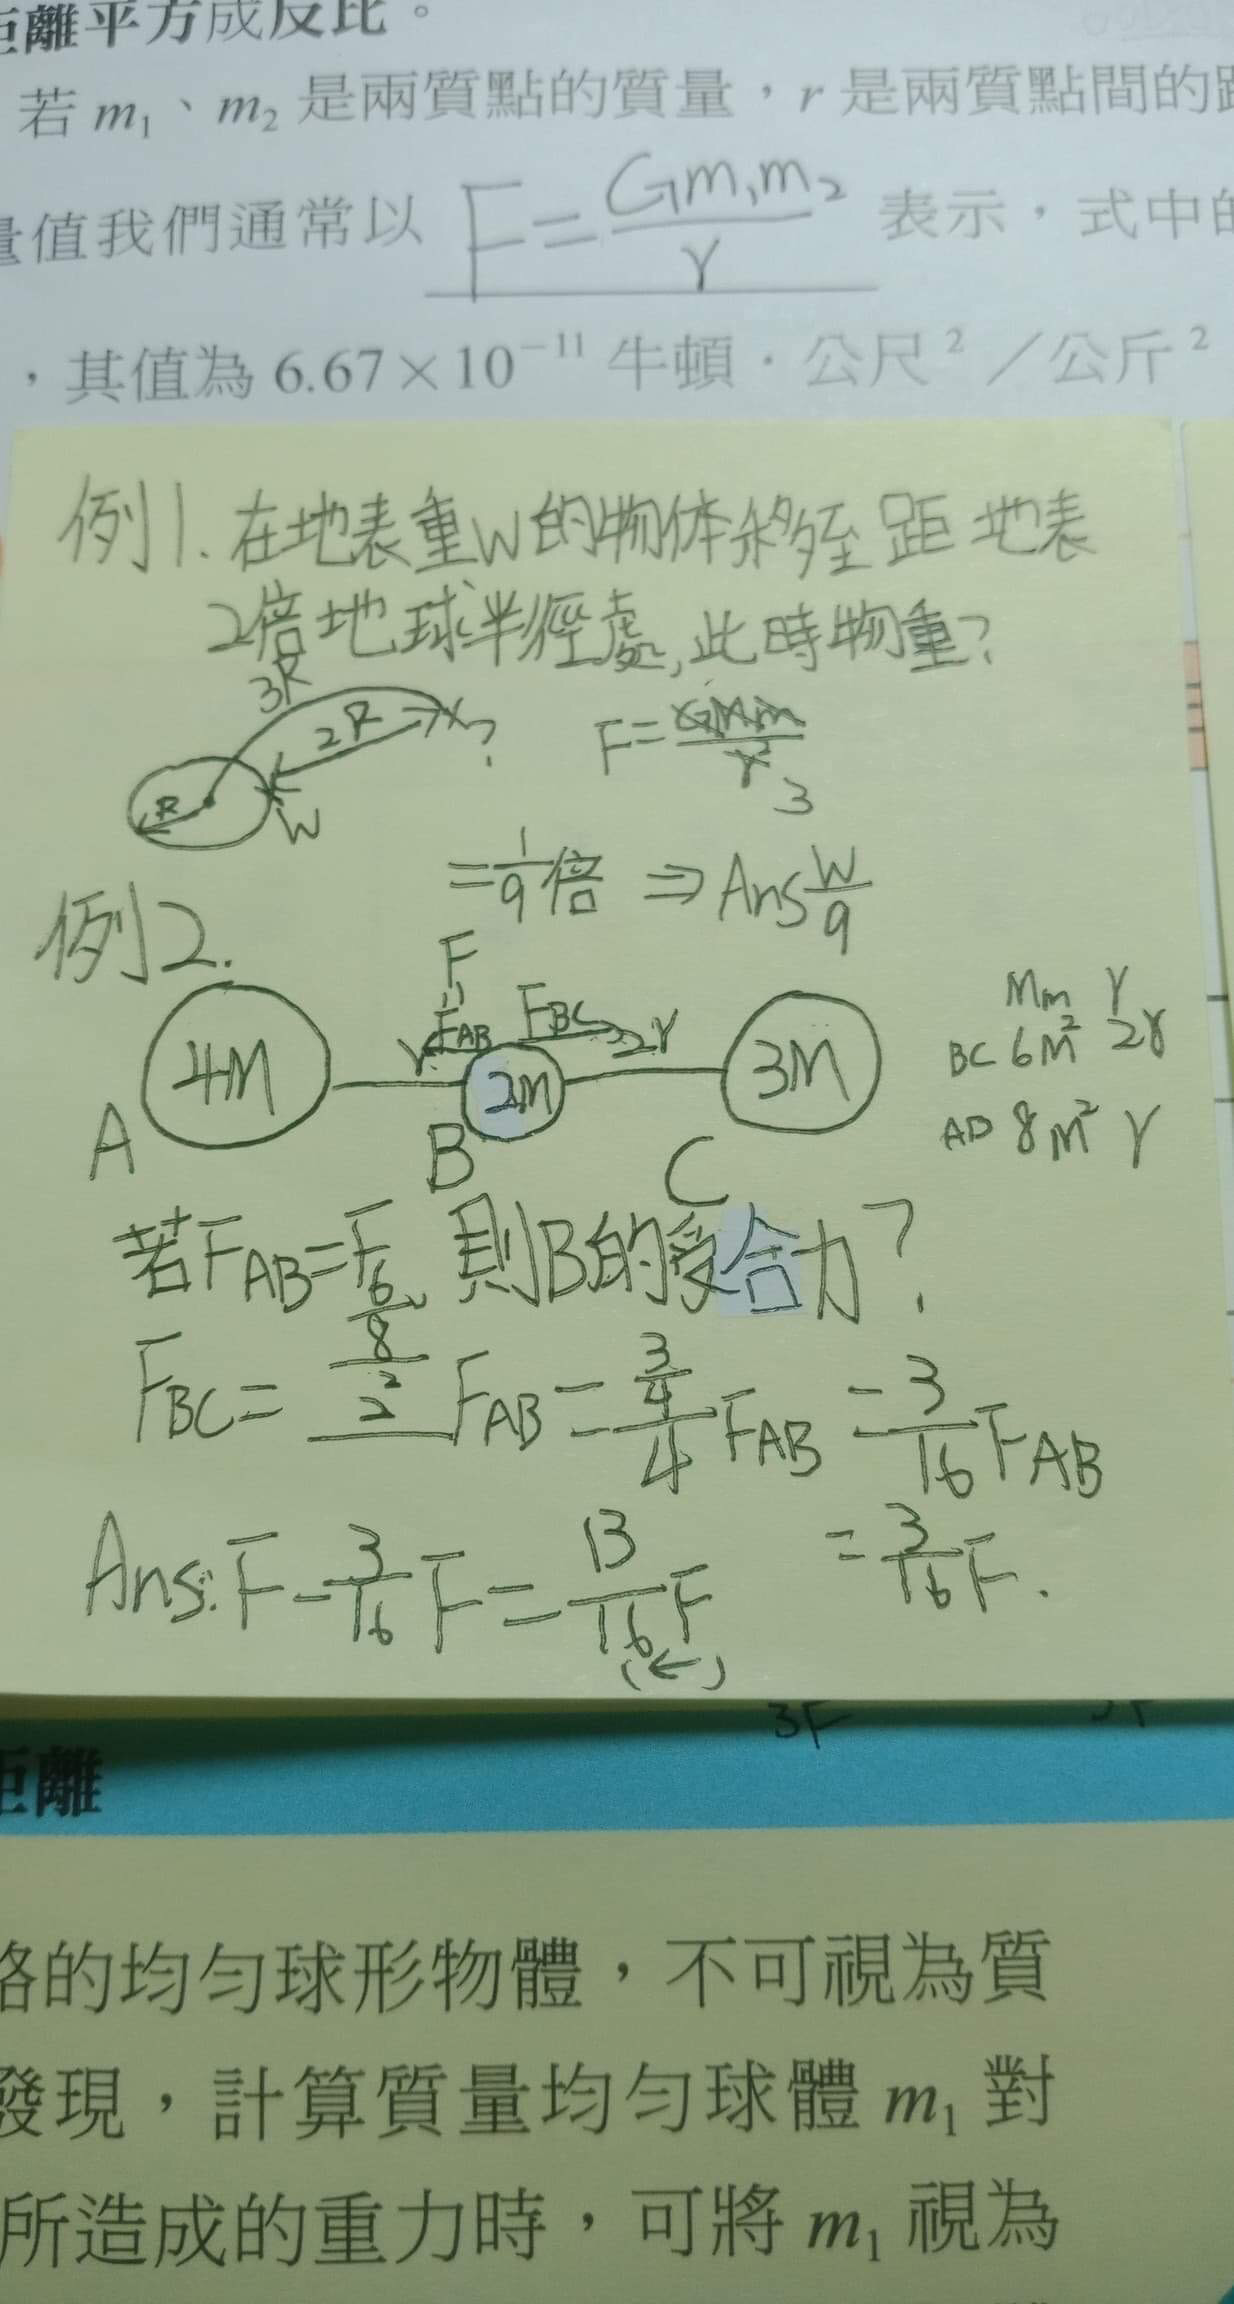 距離平方成反比。
若 m₁、m₂ 是兩質點的質量，r 是兩質點間的
量值我們通常以 F=Gm₁m₂/r 表示，式中的
，其值為 6.67×10⁻¹¹ 牛頓．公尺²／公斤²
例1. 在地表重W的物体移至距地表
2倍地球半徑處,此時物重?
3R
2R
?
R
W
F=GMm/r²
3
=1/9倍 ⇒ Ans W/9
例2.
F
"
F_AB F_BC
r 2r
4M 2M 3M
A B C
Mm r
BC 6M² 2r
AD 8M² r
若F_AB=F, 則B的受合力?
F_BC= (6/8)/2² F_AB = (3/4)/4 F_AB = 3/16 F_AB
= 3/16 F.
Ans: F - 3/16 F = 13/16 F
(←)
3F
距離
的均勻球形物體，不可視為質
發現，計算質量均勻球體 m₁ 對
所造成的重力時，可將 m₁ 視為